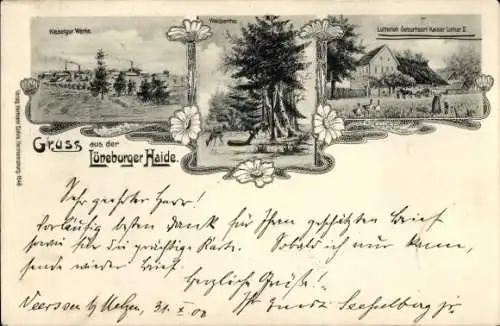 Kieselgur Werke.
Waldpartie.
Lutterloh Geburtsort Kaiser Lothar II.
Gruss aus der
Lüneburger Haide.
Sehr geehrter Herr!
Vorläufig besten Dank für Ihren geschätzten Brief
sowie für die prächtige Karte. Sobald ich nur kann,
sende wieder Brief.
Herzliche Grüße!
Veerssen b/ Uelzen, 31. X. 00 Ihr Seehelberg jr.